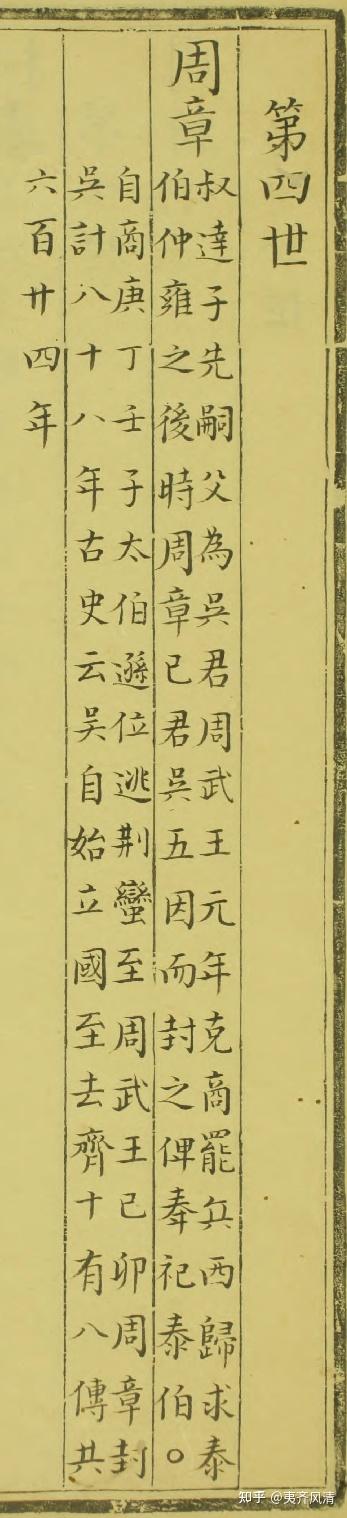 第四世
周章
叔達子先嗣父為吳君周武王元年克商罷兵西歸求泰
伯仲雍之後時周章已君吳五因而封之俾奉祀泰伯。
自商庚丁壬子太伯遜位逃荆蠻至周武王己卯周章封
吳計八十八年古史云吴自始立國至去齊十有八傳共
六百廿四年
知乎 @夷齐风清